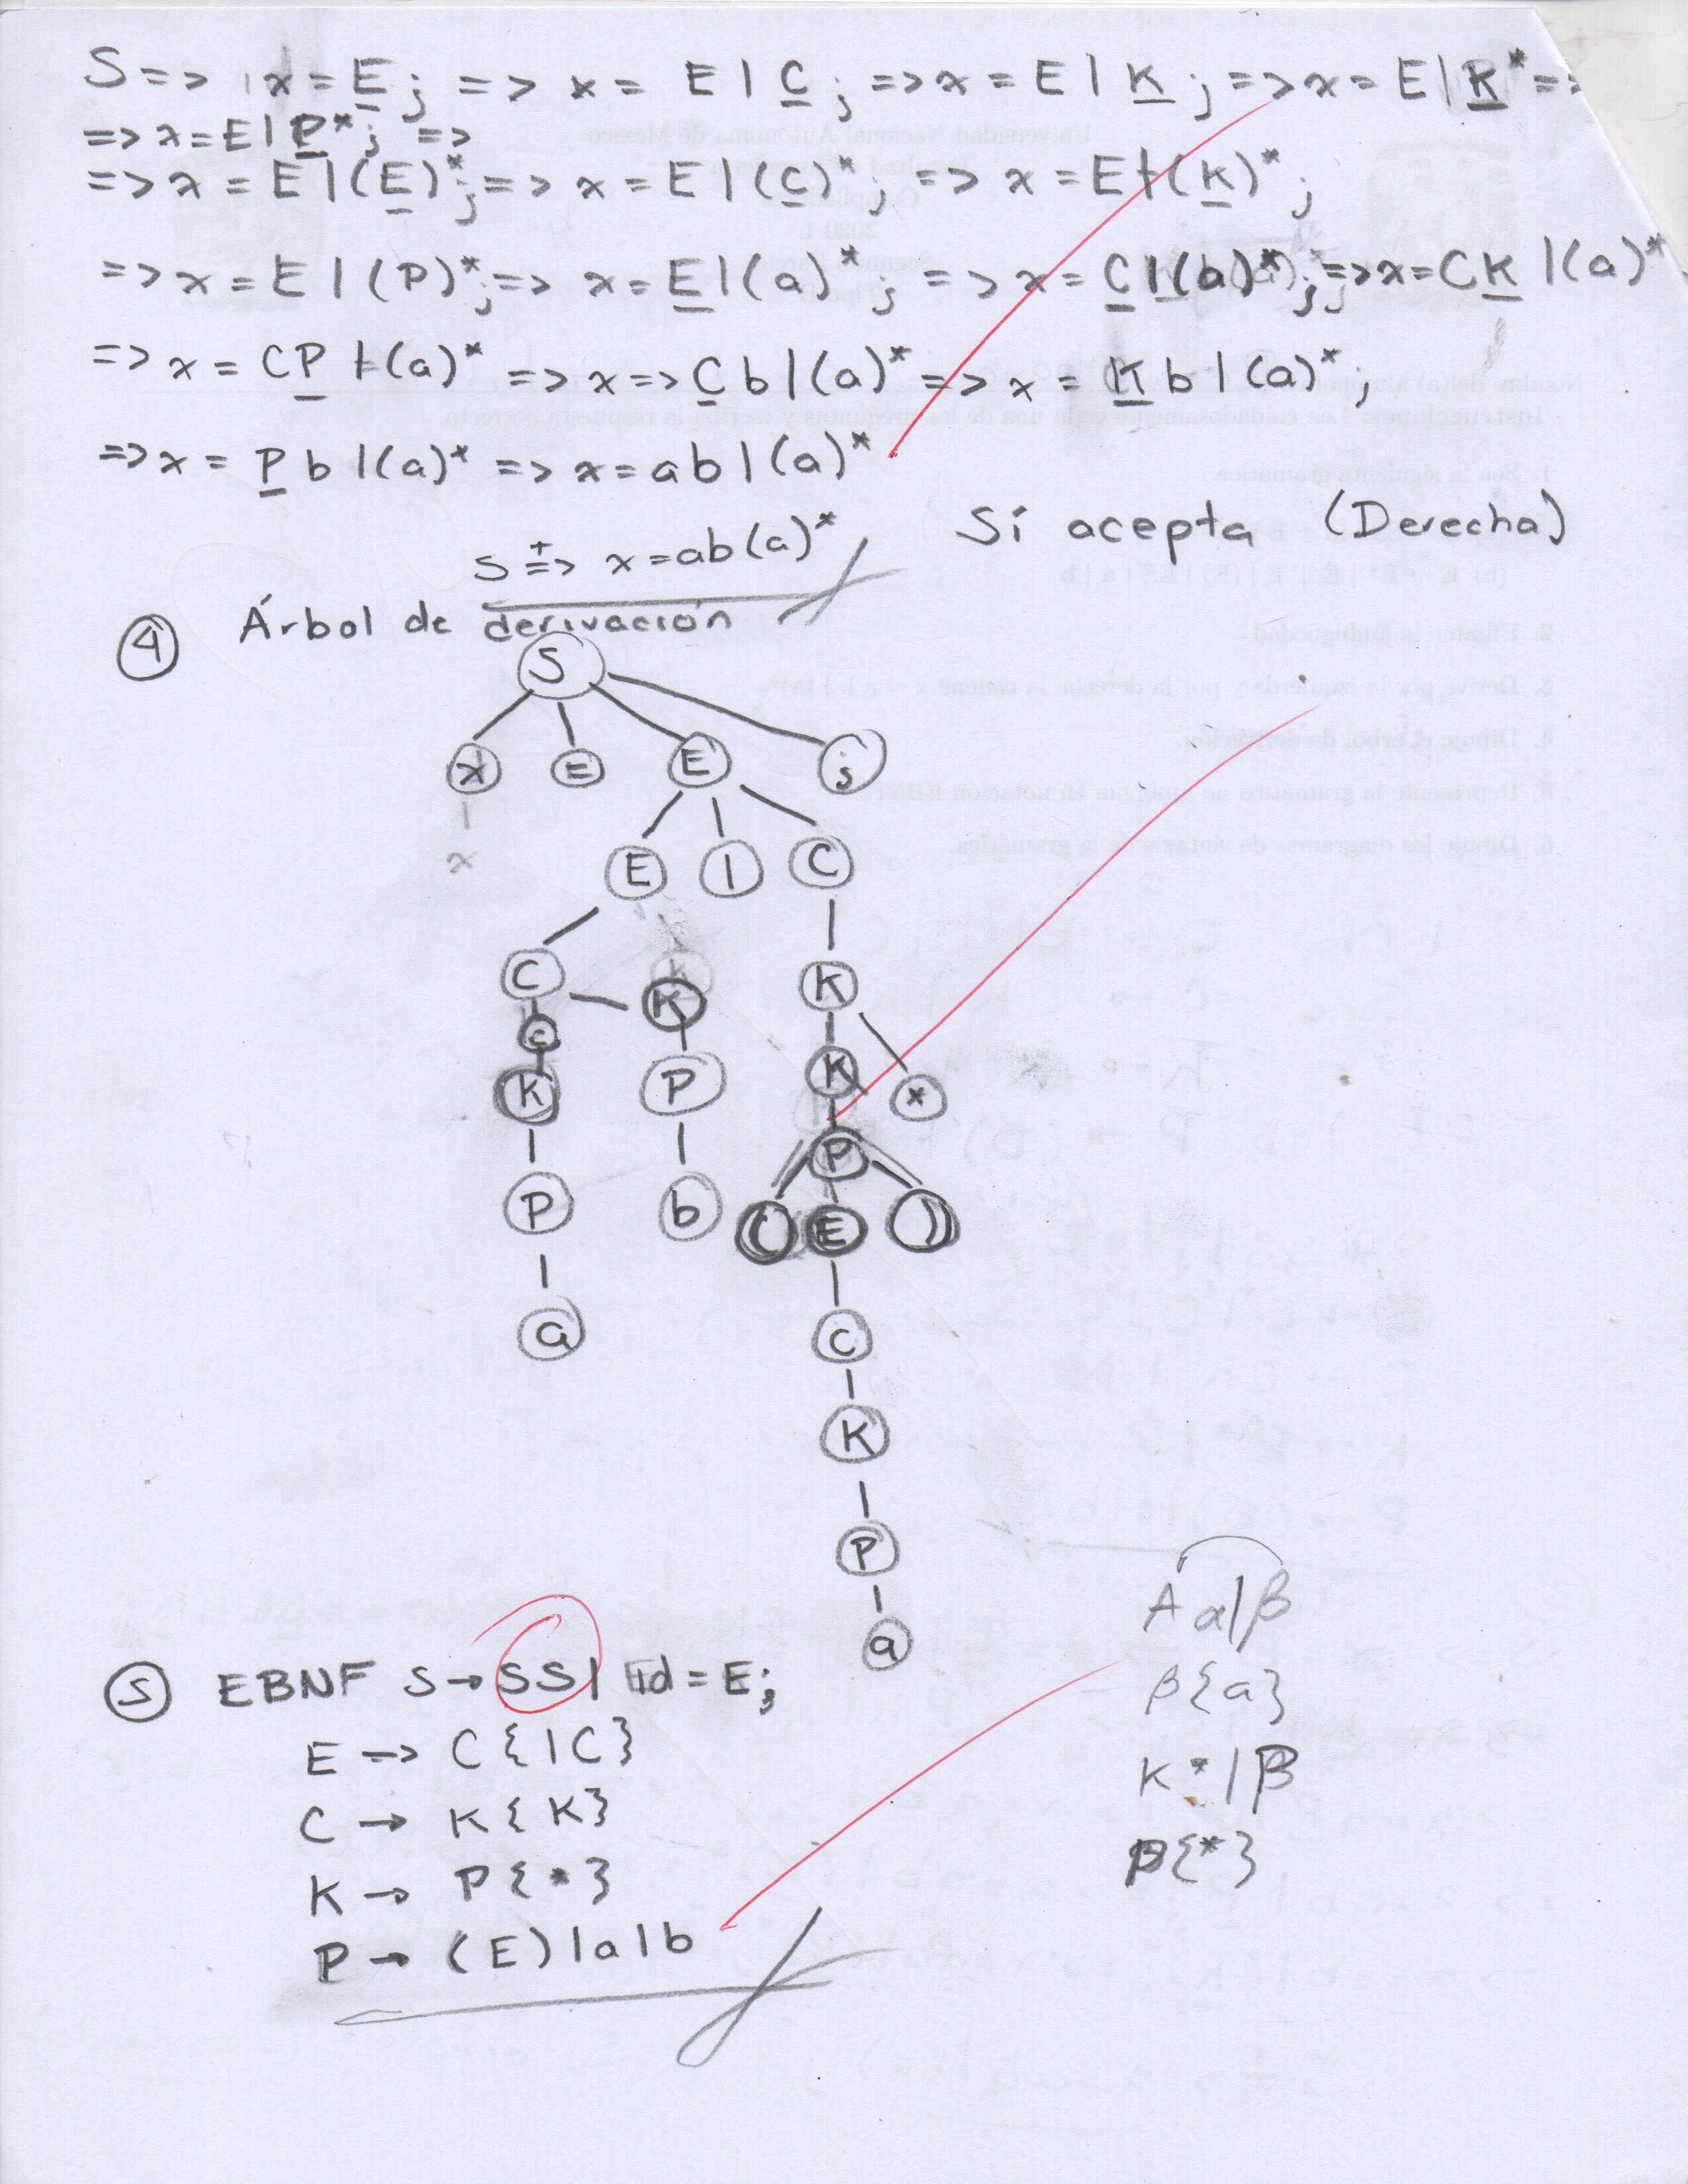 S => x = E ; => x = E | C ; => x = E | K ; => x = E | K* =>
=> x = E | P* ; =>
=> x = E | (E)* ; => x = E | (C)* ; => x = E | (K)* ;
=> x = E | (P)* ; => x = E | (a)* ; => x = C | (a)* ; => x = C K | (a)*
=> x = C P | (a)* => x => C b | (a)* => x = K b | (a)* ;
=> x = P b | (a)* => x = a b | (a)*
Sí acepta (Derecha)
S =+> x = ab(a)*
④ Árbol de derivación
S
x = E ;
x
E | C
C K K
C
K P K *
P
P b ( E )
a C
K
P
a
⑤ EBNF S → SS | id = E;
E → C { | C }
C → K { K }
K → P { * }
P → (E) | a | b
A α | β
β { a }
K * | β
β { * }